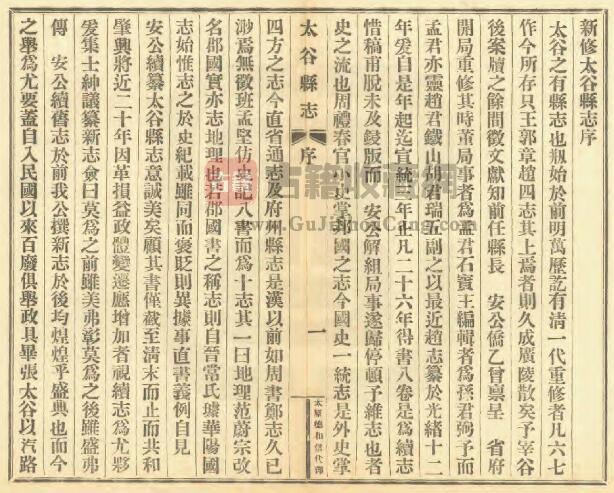 新修太谷縣志序
太谷之有縣志也刱始於前明萬歷訖有清一代重修者凡六七
作今所存只王郭章趙四志其上焉者則久成廣陵散矣予宰谷
後案牘之餘間徵文獻知前任縣長　安公僑乙曾稟呈　省府
開局重修其時董局事者爲孟君石寶王編輯者爲孫君弼予而
孟君亦靈趙君鐵山胡君瑞五副之以最近趙志纂於光緒十二
年爰自是年起迄宣統三年正凡二十六年得書八卷是爲續志
惜稿甫脫未及鋟版而　安公解組局事遂歸停頓予維志也者
史之流也周禮春官小史掌邦國之志今國史一統志是外史掌
太谷縣志
序
一
太原德和信代印
四方之志今直省通志及府州縣志是漢以前如周書鄭志久已
渺焉無徵班孟堅仿史記八書而爲十志其一曰地理范蔚宗改
名郡國實亦志地理也若郡國書之稱志則自晉常氏璩華陽國
志始惟志之於史紀載雖同而褒貶則異據事直書義例自見
安公續纂太谷縣志意誠美矣顧其書僅截至清末而止而共和
肇興將近二十年因革損益政體變遷應增加者視續志爲尤夥
爰集士紳議纂新志僉曰莫爲之前雖美弗彰莫爲之後雖盛弗
傳　安公續舊志於前我公撰新志於後均煌煌乎盛典也而今
之舉爲尤要蓋自入民國以來百廢俱舉政具畢張太谷以汽路
古籍收藏網
www.GuJiShouCang.com